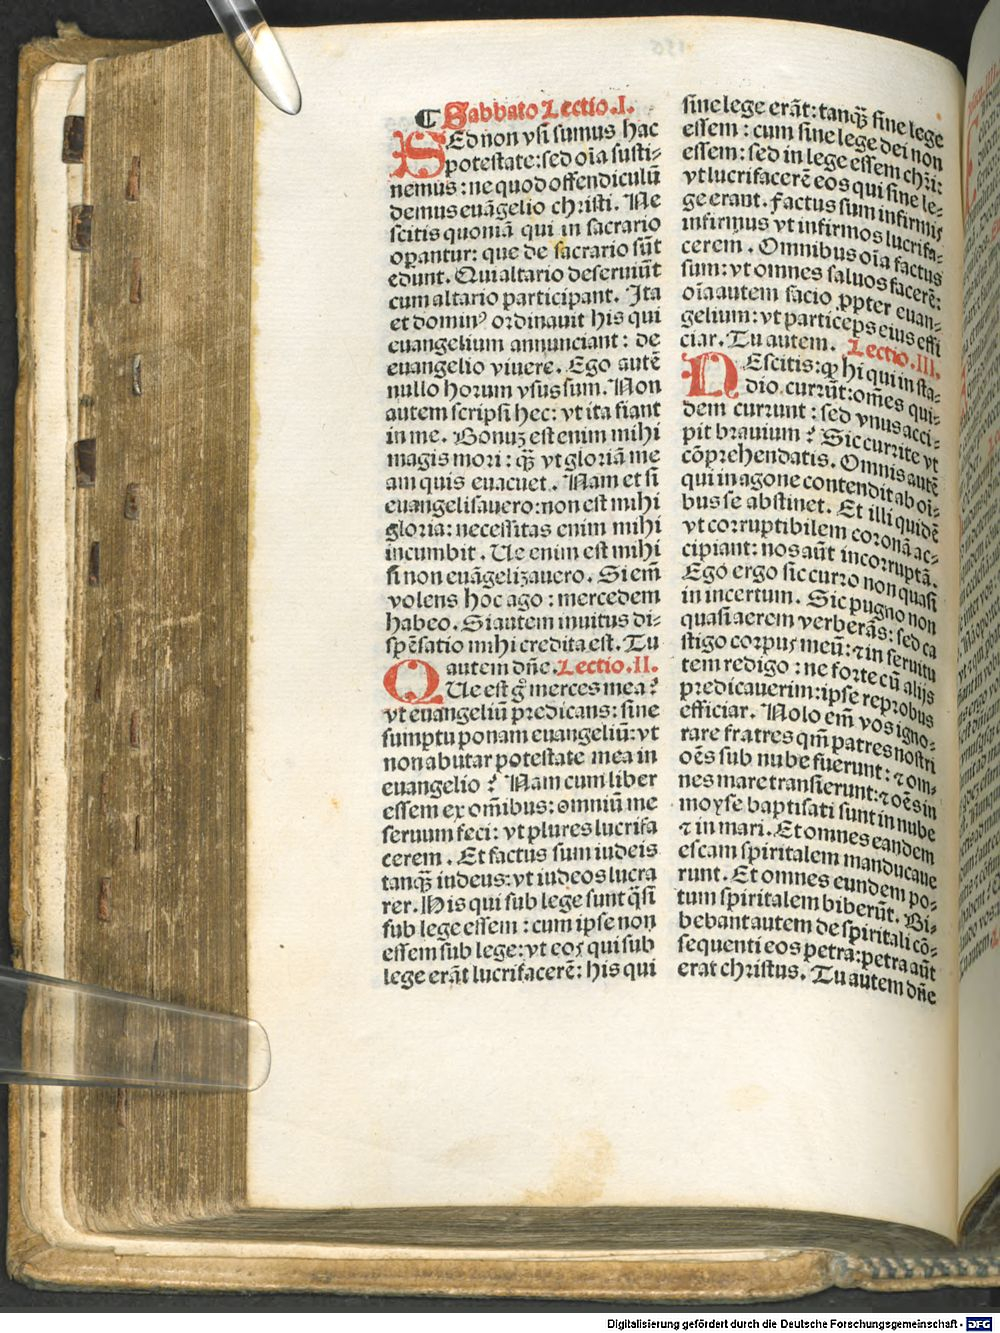 ¶ Sabbato Lectio.I.
SEd non vsi sumus hac
potestate: sed oīa susti-
nemus: ne quod offendiculū
demus euāgelio christi. Ne
scitis quoniā qui in sacrario
operantur: que de sacrario sūt
edunt. Qui altario deseruiūt
cum altario participant. Ita
et dominꝰ ordinauit his qui
euangelium annunciant: de
euangelio viuere. Ego autē
nullo horum vsus sum. Non
autem scripsi hec: vt ita fiant
in me. Bonuʒ est enim mihi
magis mori: qꝫ̄ vt gloriā me
am quis euacuet. Nam et si
euangelisauero: non est mihi
gloria: necessitas enim mihi
incumbit. Ue enim est mihi
si non euāgelizauero. Si em̄
volens hoc ago: mercedem
habeo. Si autem inuitus di-
spēsatio mihi credita est. Tu
autem dn̄e. Lectio.II.
QUe est gͦ merces mea?
vt euangeliū predicans: sine
sumptu ponam euangeliū: vt
non abutar potestate mea in
euangelio? Nam cum liber
essem ex om̄ibus: omniū me
seruum feci: vt plures lucrifa
cerem. Et factus sum iudeis
tanqꝫ̄ iudeus: vt iudeos lucra
rer. His qui sub lege sunt q̄si
sub lege essem: cum ipse non
essem sub lege: vt eoꝝ qui sub
lege erāt lucrifacerē: his qui
sine lege erāt: tanqꝫ̄ sine lege
essem: cum sine lege dei non
essem: sed in lege essem chr̄i:
vt lucrifacerē eos qui sine le-
ge erant. Factus sum infirmis
infirmus vt infirmos lucrifa-
cerem. Omnibus oīa factus
sum: vt omnes saluos facerē:
oīa autem facio ꝓpter euan-
gelium: vt particeps eius effi
ciar. Tu autem. Lectio.III.
NEscitis: ꝙ hi qui in sta-
dio currūt: om̄es qui-
dem currunt: sed vnus acci-
pit brauium? Sic currite vt
cōprehendatis. Omnis autē
qui in agone contendit ab oī-
bus se abstinet. Et illi quidē
vt corruptibilem coronā ac-
cipiant: nos aūt incorruptā.
Ego ergo sic curro non quasi
in incertum. Sic pugno non
quasi aerem verberās: sed ca
stigo corpus meū: ⁊ in seruitu
tem redigo: ne forte cū aliis
predicauerim: ipse reprobus
efficiar. Nolo em̄ vos igno-
rare fratres qm̄ patres nostri
oēs sub nube fuerunt: ⁊ om-
nes mare transierunt: ⁊ oēs in
moyse baptisati sunt in nube
⁊ in mari. Et omnes eandem
escam spiritalem manducaue
runt. Et omnes eundem po-
tum spiritalem biberūt. Bi-
bebant autem de spiritali cō-
sequenti eos petra: petra aūt
erat christus. Tu autem dn̄e
Digitalisierung gefördert durch die Deutsche Forschungsgemeinschaft - DFG